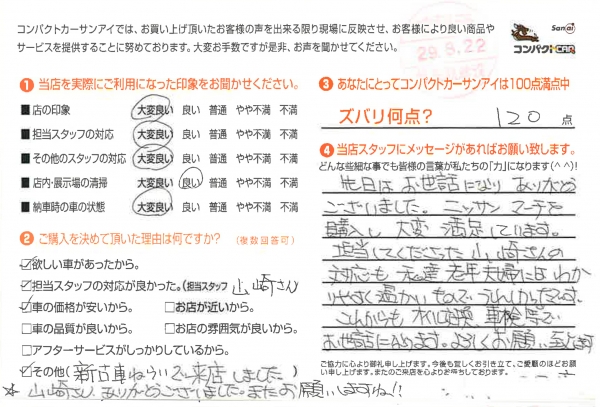 コンパクトカーサンアイでは、お買い上げ頂いたお客様の声を出来る限り現場に反映させ、お客様により良い商品や
サービスを提供することに努めております。大変お手数ですが是非、お声を聞かせてください。
29.8.22
Sanai
コンパクトCAR
① 当店を実際にご利用になった印象をお聞かせください。
■店の印象 大変良い 良い 普通 やや不満 不満
■担当スタッフの対応 大変良い 良い 普通 やや不満 不満
■その他のスタッフの対応 大変良い 良い 普通 やや不満 不満
■店内・展示場の清掃 大変良い 良い 普通 やや不満 不満
■納車時の車の状態 大変良い 良い 普通 やや不満 不満
② ご購入を決めて頂いた理由は何ですか? (複数回答可)
☑欲しい車があったから。
☑担当スタッフの対応が良かった。(担当スタッフ 山崎さん
☑車の価格が安いから。 □お店が近いから。
□車の品質が良いから。 □お店の雰囲気が良いから。
□アフターサービスがしっかりしているから。
☑その他(新古車ねらいで来店しました)
③ あなたにとってコンパクトカーサンアイは100点満点中
ズバリ何点? 120 点
④ 当店スタッフにメッセージがあればお願い致します。
どんな些細な事でも皆様の言葉が私たちの「力」になります(^^)!
先日は お世話になり ありがとう
ございました。ニッサン マーチを
購入し 大変 満足しています。
担当してくださった 山崎さんの
対応も 私達 老年夫婦には わか
りやすく 温かい もので、うれしかったです。
これからも オイル交換、車検 等で
お世話になります。よろしくお願い 致します
ご協力に心より御礼申し上げます。今後も宜しくお引き立て、ご愛顧のほどお願
い申し上げます。またのご来店を心よりお待ちしております。
＊山崎さん ありがとうございました。またお願いしますね!!